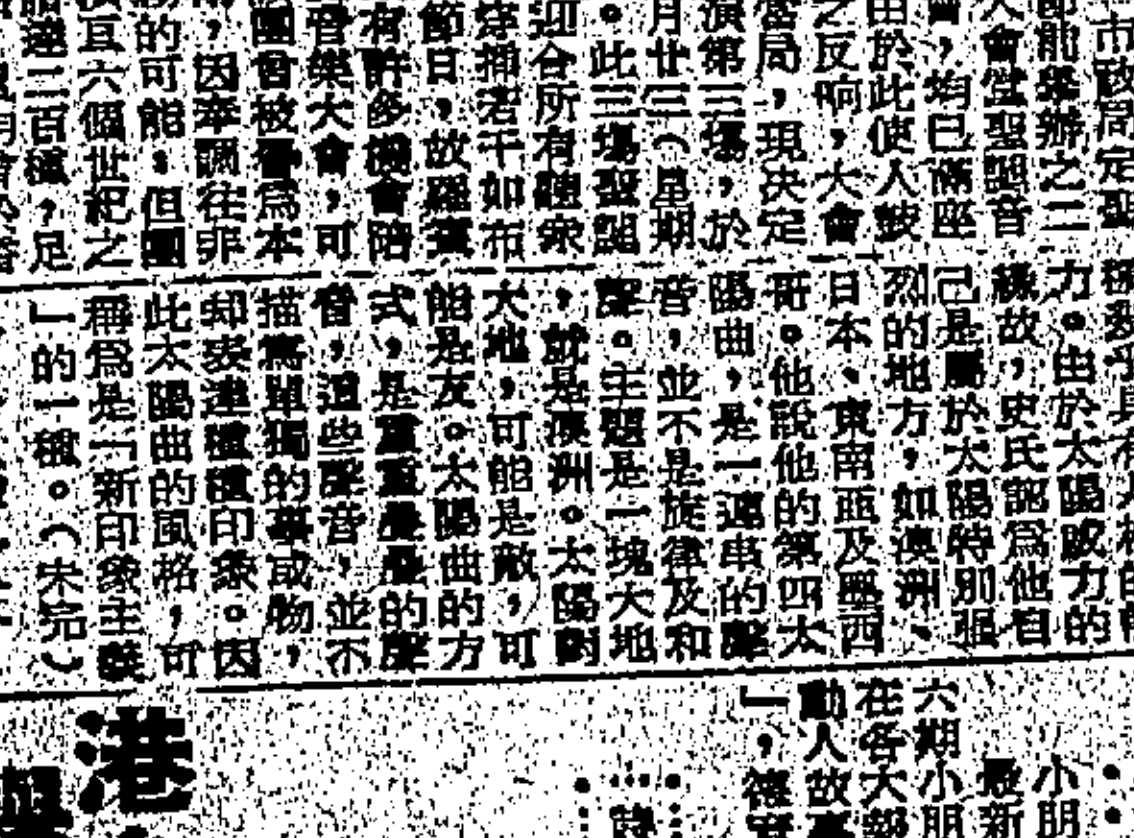 市政局定聖
節前舉辦之二
大會堂聖誕音
會，均已滿座
由於此使人鼓
之反响，大會
當局，現決定
演第三場，於
月廿三（星期
。此三場聖誕
迎合所有聽衆
穿插若干如布
節日，故羅賓
有許多機會陪
音樂大會，可
團曾被譽爲本
，因奉調往非
的可能。但團
亙六個世紀之
達二百種，足
力。由於太陽威力的
緣故，史氏認爲他自
己是屬於太陽特別猛
烈的地方，如澳洲、
日本、東南亞及墨西
哥。他說他的第四太
陽曲，是一連串的聲
音，並不是旋律及和
聲。主題是一塊大地
，就是澳洲。太陽對
大地，可能是敵，可
能是友。太陽曲的方
式，是重重叠叠的聲
音，這些聲音，並不
描寫單獨的事或物，
却表達種種印象。因
此太陽曲的風格，可
稱爲是「新印象主義
」的一種。（未完）
小朋
最新
六期小朋
在各大
動人故事
」，
港